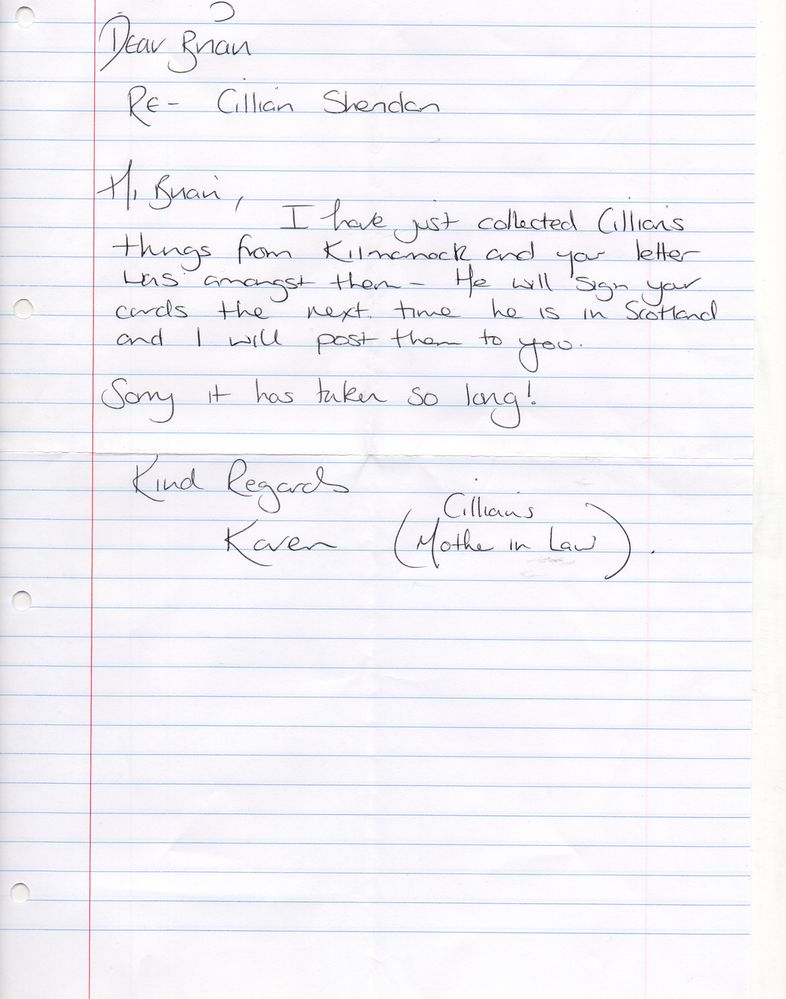 Dear Brian
RE- Cillian Sheridan
Hi Brian,
I have just collected Cillians
things from Kilmarnock and your letter
was amongst them - He will sign your
cards the next time he is in Scotland
and I will post them to you.
Sorry it has taken so long!
Kind Regards
Karen (Cillian's
Mothe in Law).